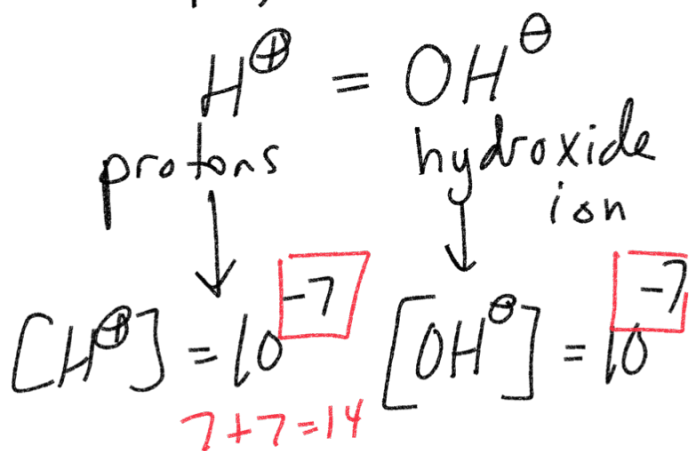 H⊕ = OH⊖
protons hydroxide
ion
[H⊕] = 10⁻⁷ [OH⊖] = 10⁻⁷
7+7=14